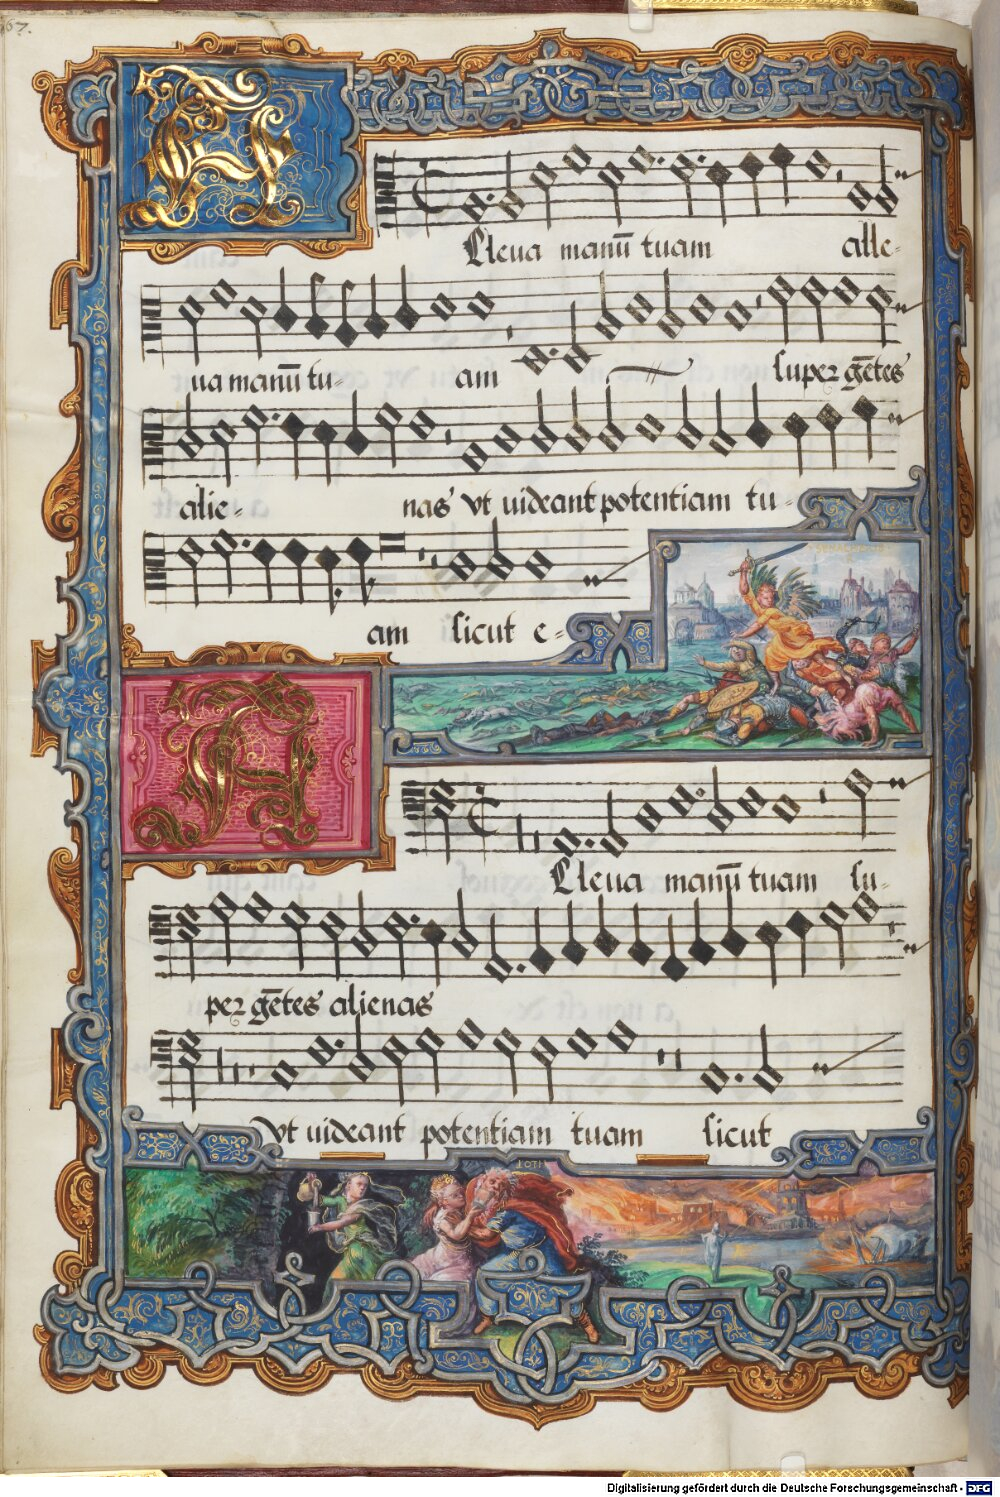 67.
Eleua manū tuam alle-
ua manū tu- am super gētes
alie- nas vt uideant potentiam tu-
am sicut e-
Eleua manū tuam su-
per gētes alienas
Vt uideant potentiam tuam sicut
LOTH
Digitalisierung gefördert durch die Deutsche Forschungsgemeinschaft - DFG